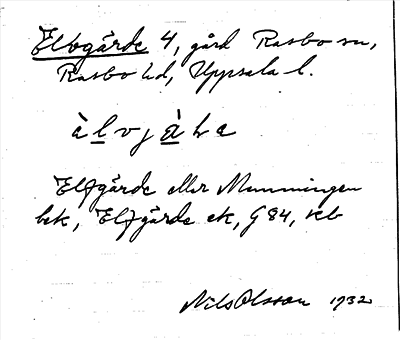 Elvgärde 4, gård Rasbo sn,
Rasbo hd, Uppsala l.
Elfgärde eller Mumningen
bek, Elfgärde ek, G 84, reb
Nils Olsson 1932